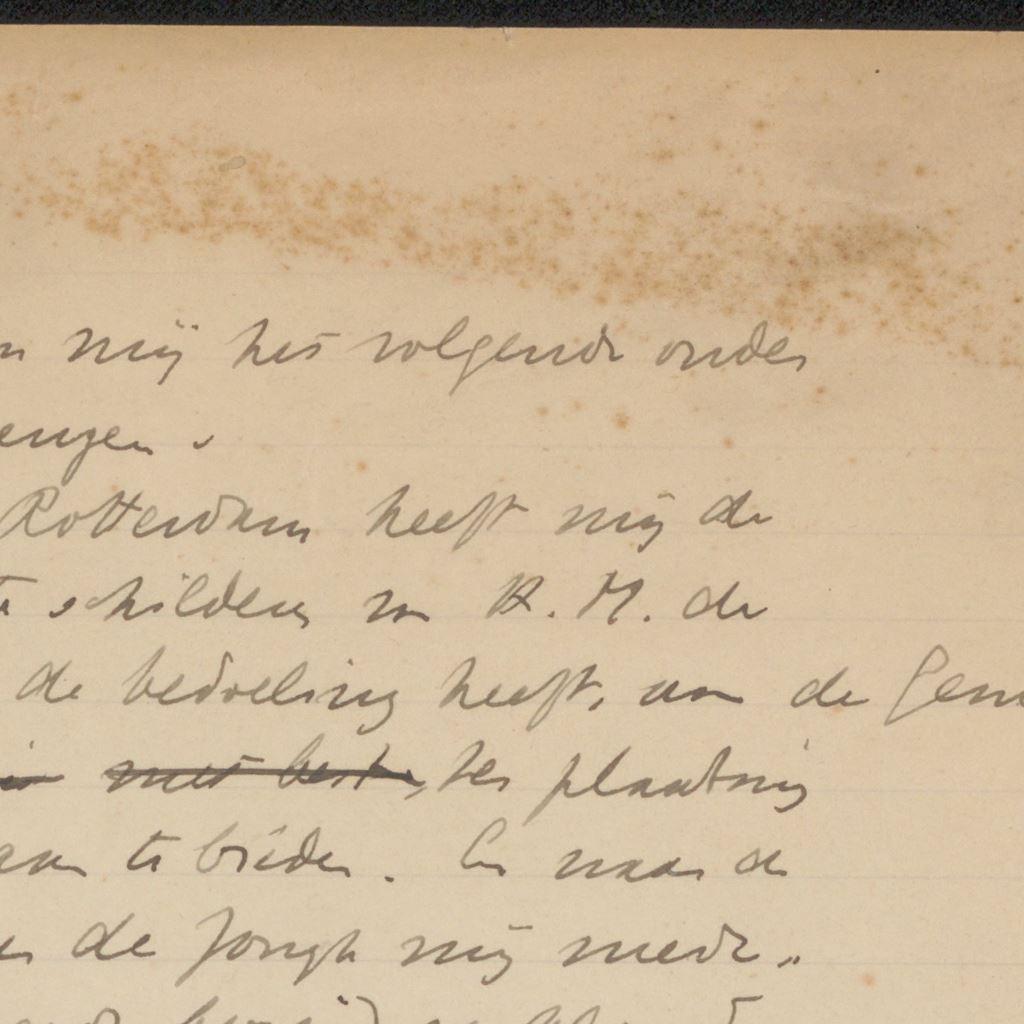 mij het volgende onder
engen.
Rotterdam heeft mij de
te schilderen van H. M. de
de bedoeling heeft, aan de Geme
met ter plaatsing
aan te bieden. En naar de
de Jongh mij mede„